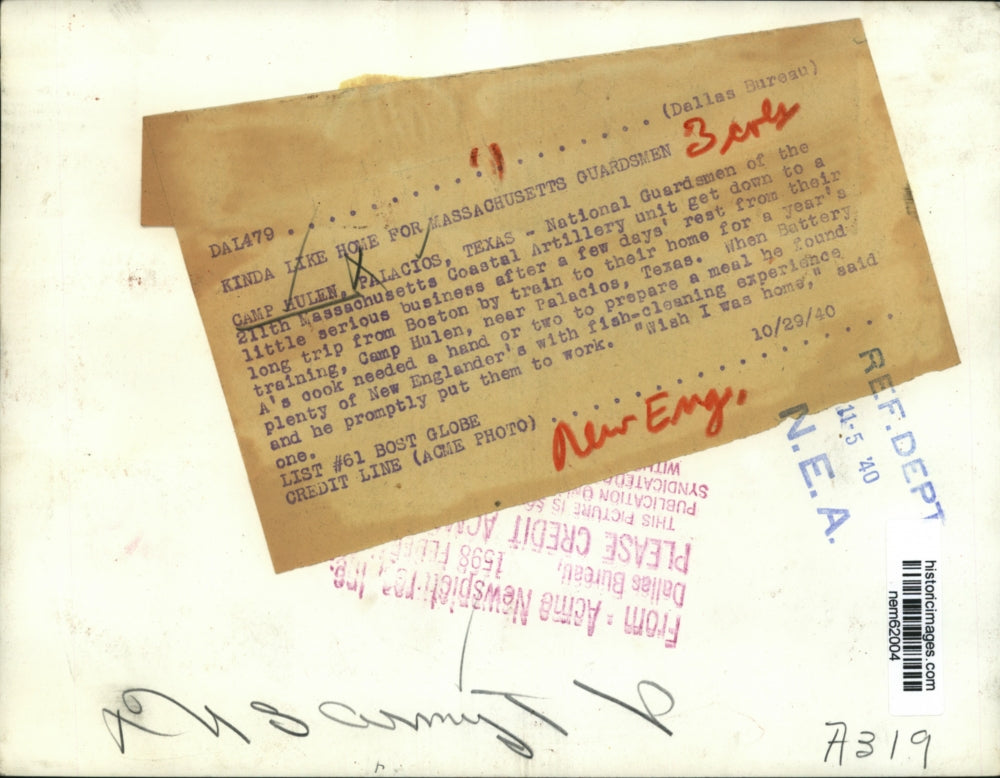 DAL479 . . . . . . . . . . . . . . . . . (Dallas Bureau)
3 cols
KINDA LIKE HOME FOR MASSACHUSETTS GUARDSMEN
CAMP HULEN, PALACIOS, TEXAS - National Guardsmen of the
211th Massachusetts Coastal Artillery unit get down to a
little serious business after a few days' rest from their
long trip from Boston by train to their home for a year's
training, Camp Hulen, near Palacios, Texas. When Battery
A's cook needed a hand or two to prepare a meal he found
plenty of New Englander's with fish-cleaning experience
and he promptly put them to work. "Wish I was home," said
one.
10/29/40
LIST #61 BOST GLOBE
CREDIT LINE (ACME PHOTO) . . . . . . . . . . . . . . .
New Eng.
REF. DEPT
11-5 '40
N.E.A.
From - Acme Newspictures, Inc.
1598
Dallas Bureau,
PLEASE CREDIT
THIS PICTURE IS
PUBLICATION
SYNDICATED
historicimages.com
nem62004
U S army
A319